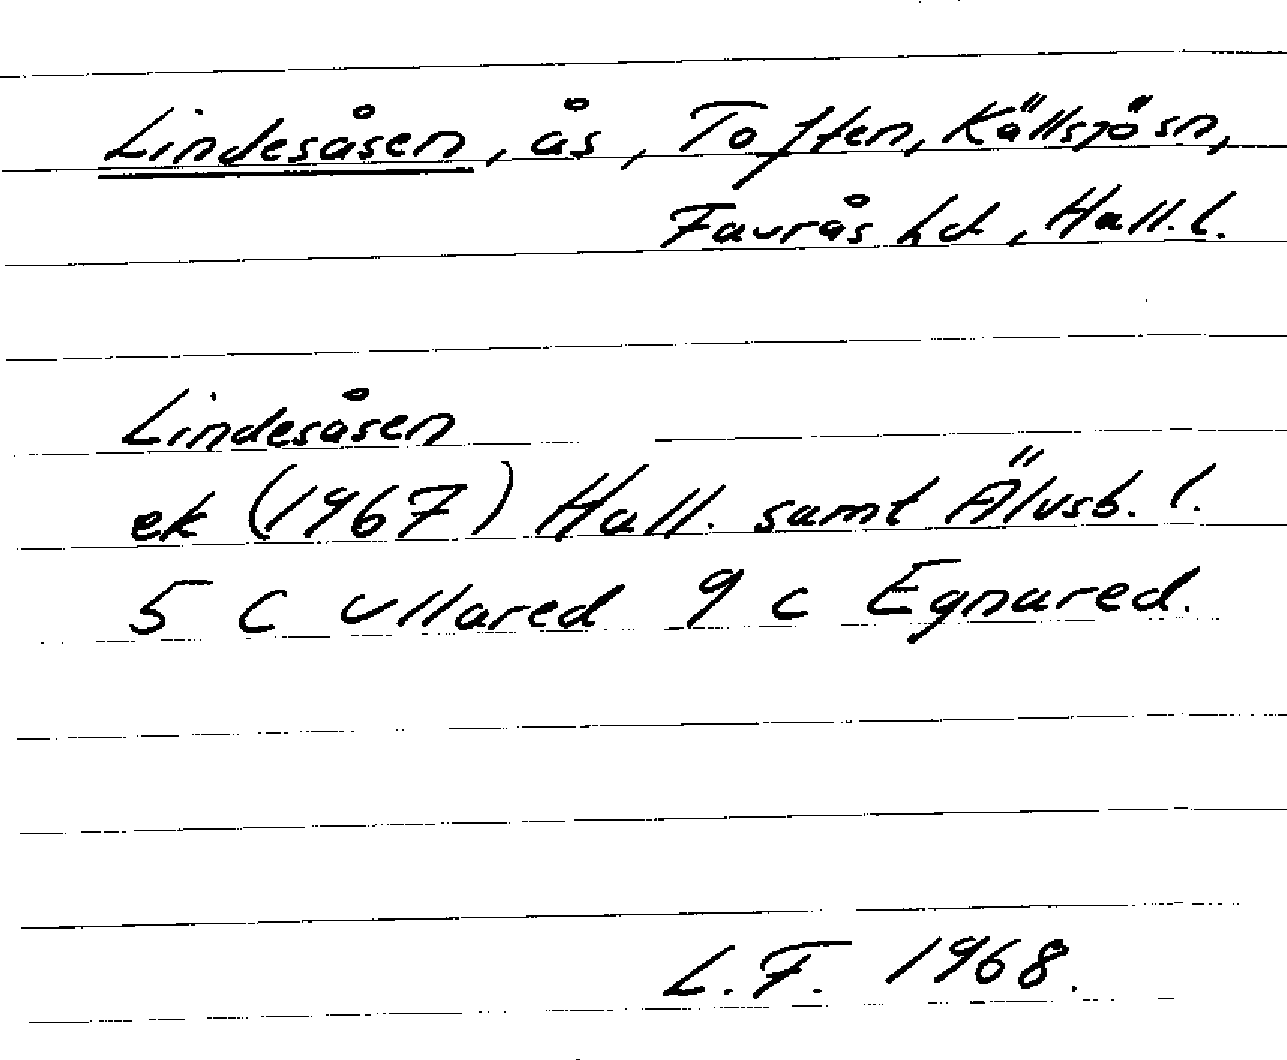 Lindesåsen, ås, Toften, Källsjösn,
Faurås hd, Hall. l.
Lindesåsen
ek (1967) Hall. samt Älvsb. l.
5 C Ullared 9 c Egnared.
L.F. 1968.